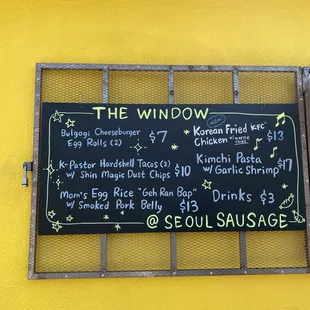 THE WINDOW
Bulgogi Cheeseburger
Egg Rolls (2) $7
K-Pastor Hardshell Tacos (2)
w/ Shin Magic Dust Chips $10
Mom's Egg Rice "Geh Ran Bap"
w/ Smoked Pork Belly $13
NEW
Korean Fried "KFC"
Chicken w/ WAFFLE FRIES $13
Kimchi Pasta
w/ Garlic Shrimp $17
Drinks $3
@ SEOUL SAUSAGE